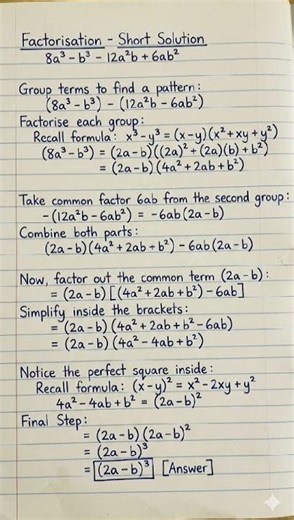 Factorisation - Short Solution
8a³ - b³ - 12a²b + 6ab²
Group terms to find a pattern:
(8a³ - b³) - (12a²b - 6ab²)
Factorise each group:
Recall formula: x³ - y³ = (x - y)(x² + xy + y²)
(8a³ - b³) = (2a - b)((2a)² + (2a)(b) + b²)
= (2a - b)(4a² + 2ab + b²)
Take common factor 6ab from the second group:
-(12a²b - 6ab²) = -6ab(2a - b)
Combine both parts:
(2a - b)(4a² + 2ab + b²) - 6ab(2a - b)
Now, factor out the common term (2a - b):
= (2a - b)[(4a² + 2ab + b²) - 6ab]
Simplify inside the brackets:
= (2a - b)(4a² + 2ab + b² - 6ab)
= (2a - b)(4a² - 4ab + b²)
Notice the perfect square inside:
Recall formula: (x - y)² = x² - 2xy + y²
4a² - 4ab + b² = (2a - b)²
Final Step:
= (2a - b)(2a - b)²
= (2a - b)³
= (2a - b)³ [Answer]